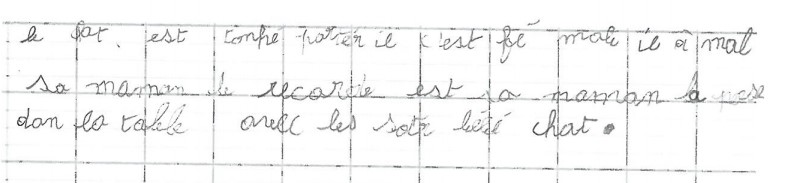 le  est tonpé parter il c'est fé male il a mal
sa maman le recarde est sa maman a pose
dan la table avec les  bébé chat.